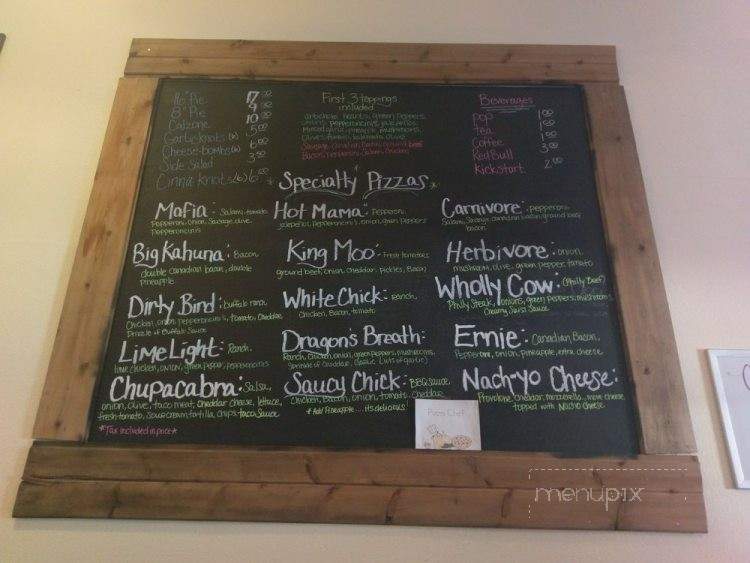 16" Pie 17.00
8" Pie 9.00
Calzone 10.00
Garlic knots (6) 5.00
Cheese-bombs (6) 6.00
Side Salad 3.50
Cinna knots (6) 6.00
First 3 toppings
included
artichoke hearts, green peppers,
onions, pepperoncinis, jalapeños,
pineapple, mushrooms
Sausage, canadian bacon, ground beef
Bacon, Pepperoni, Salami, chicken
Beverages
pop 1.00
tea 1.00
Coffee 1.00
Red Bull 3.00
Kickstart 2.00
* Specialty Pizzas *
Mafia: Salami, tomato,
Pepperoni, onion, Sausage, olive,
Pepperoncinis
Hot Mama: Pepperoni,
jalapeños, pepperoncini's, onion, green peppers
Carnivore: pepperoni,
Salami, Sausage, canadian bacon, ground beef,
bacon
Big Kahuna: Bacon,
double canadian bacon, double
pineapple
King Moo: Fresh tomatoes
ground beef, onion, cheddar, pickles, Bacon
Herbivore: onion,
mushroom, olive, green pepper, tomato
Dirty Bird: buffalo ranch,
Chicken, onion, pepperoncini's, tomato, Cheddar,
Drizzle of Buffalo Sauce
White Chick: ranch,
Chicken, Bacon, tomato
Wholly Cow: (Philly Beef)
Philly Steak, onions, green peppers, mushrooms
Creamy Sauce
Lime Light: Ranch,
lime chicken, onion, green pepper, pepperoncinis
Dragon's Breath:
Ranch, Chicken, onion, green peppers, mushrooms,
Sprinkle of Cheddar (Garlic Lots of garlic)
Ernie: Canadian Bacon,
Pepperoni, onion, pineapple, extra cheese
Chupacabra: Salsa,
onion, olive, taco meat, cheddar cheese, lettuce,
fresh-tomato, sour cream, tortilla chips, taco Sauce
Saucy Chick: BBQ Sauce,
Chicken, Bacon, onion, tomato, cheddar
* Add Pineapple ....its delicious!
Nach-yo Cheese:
Provolone, cheddar, mozzarella... more cheese
topped with Nacho cheese
*Tax included in price*
Pizza Chef
menupix